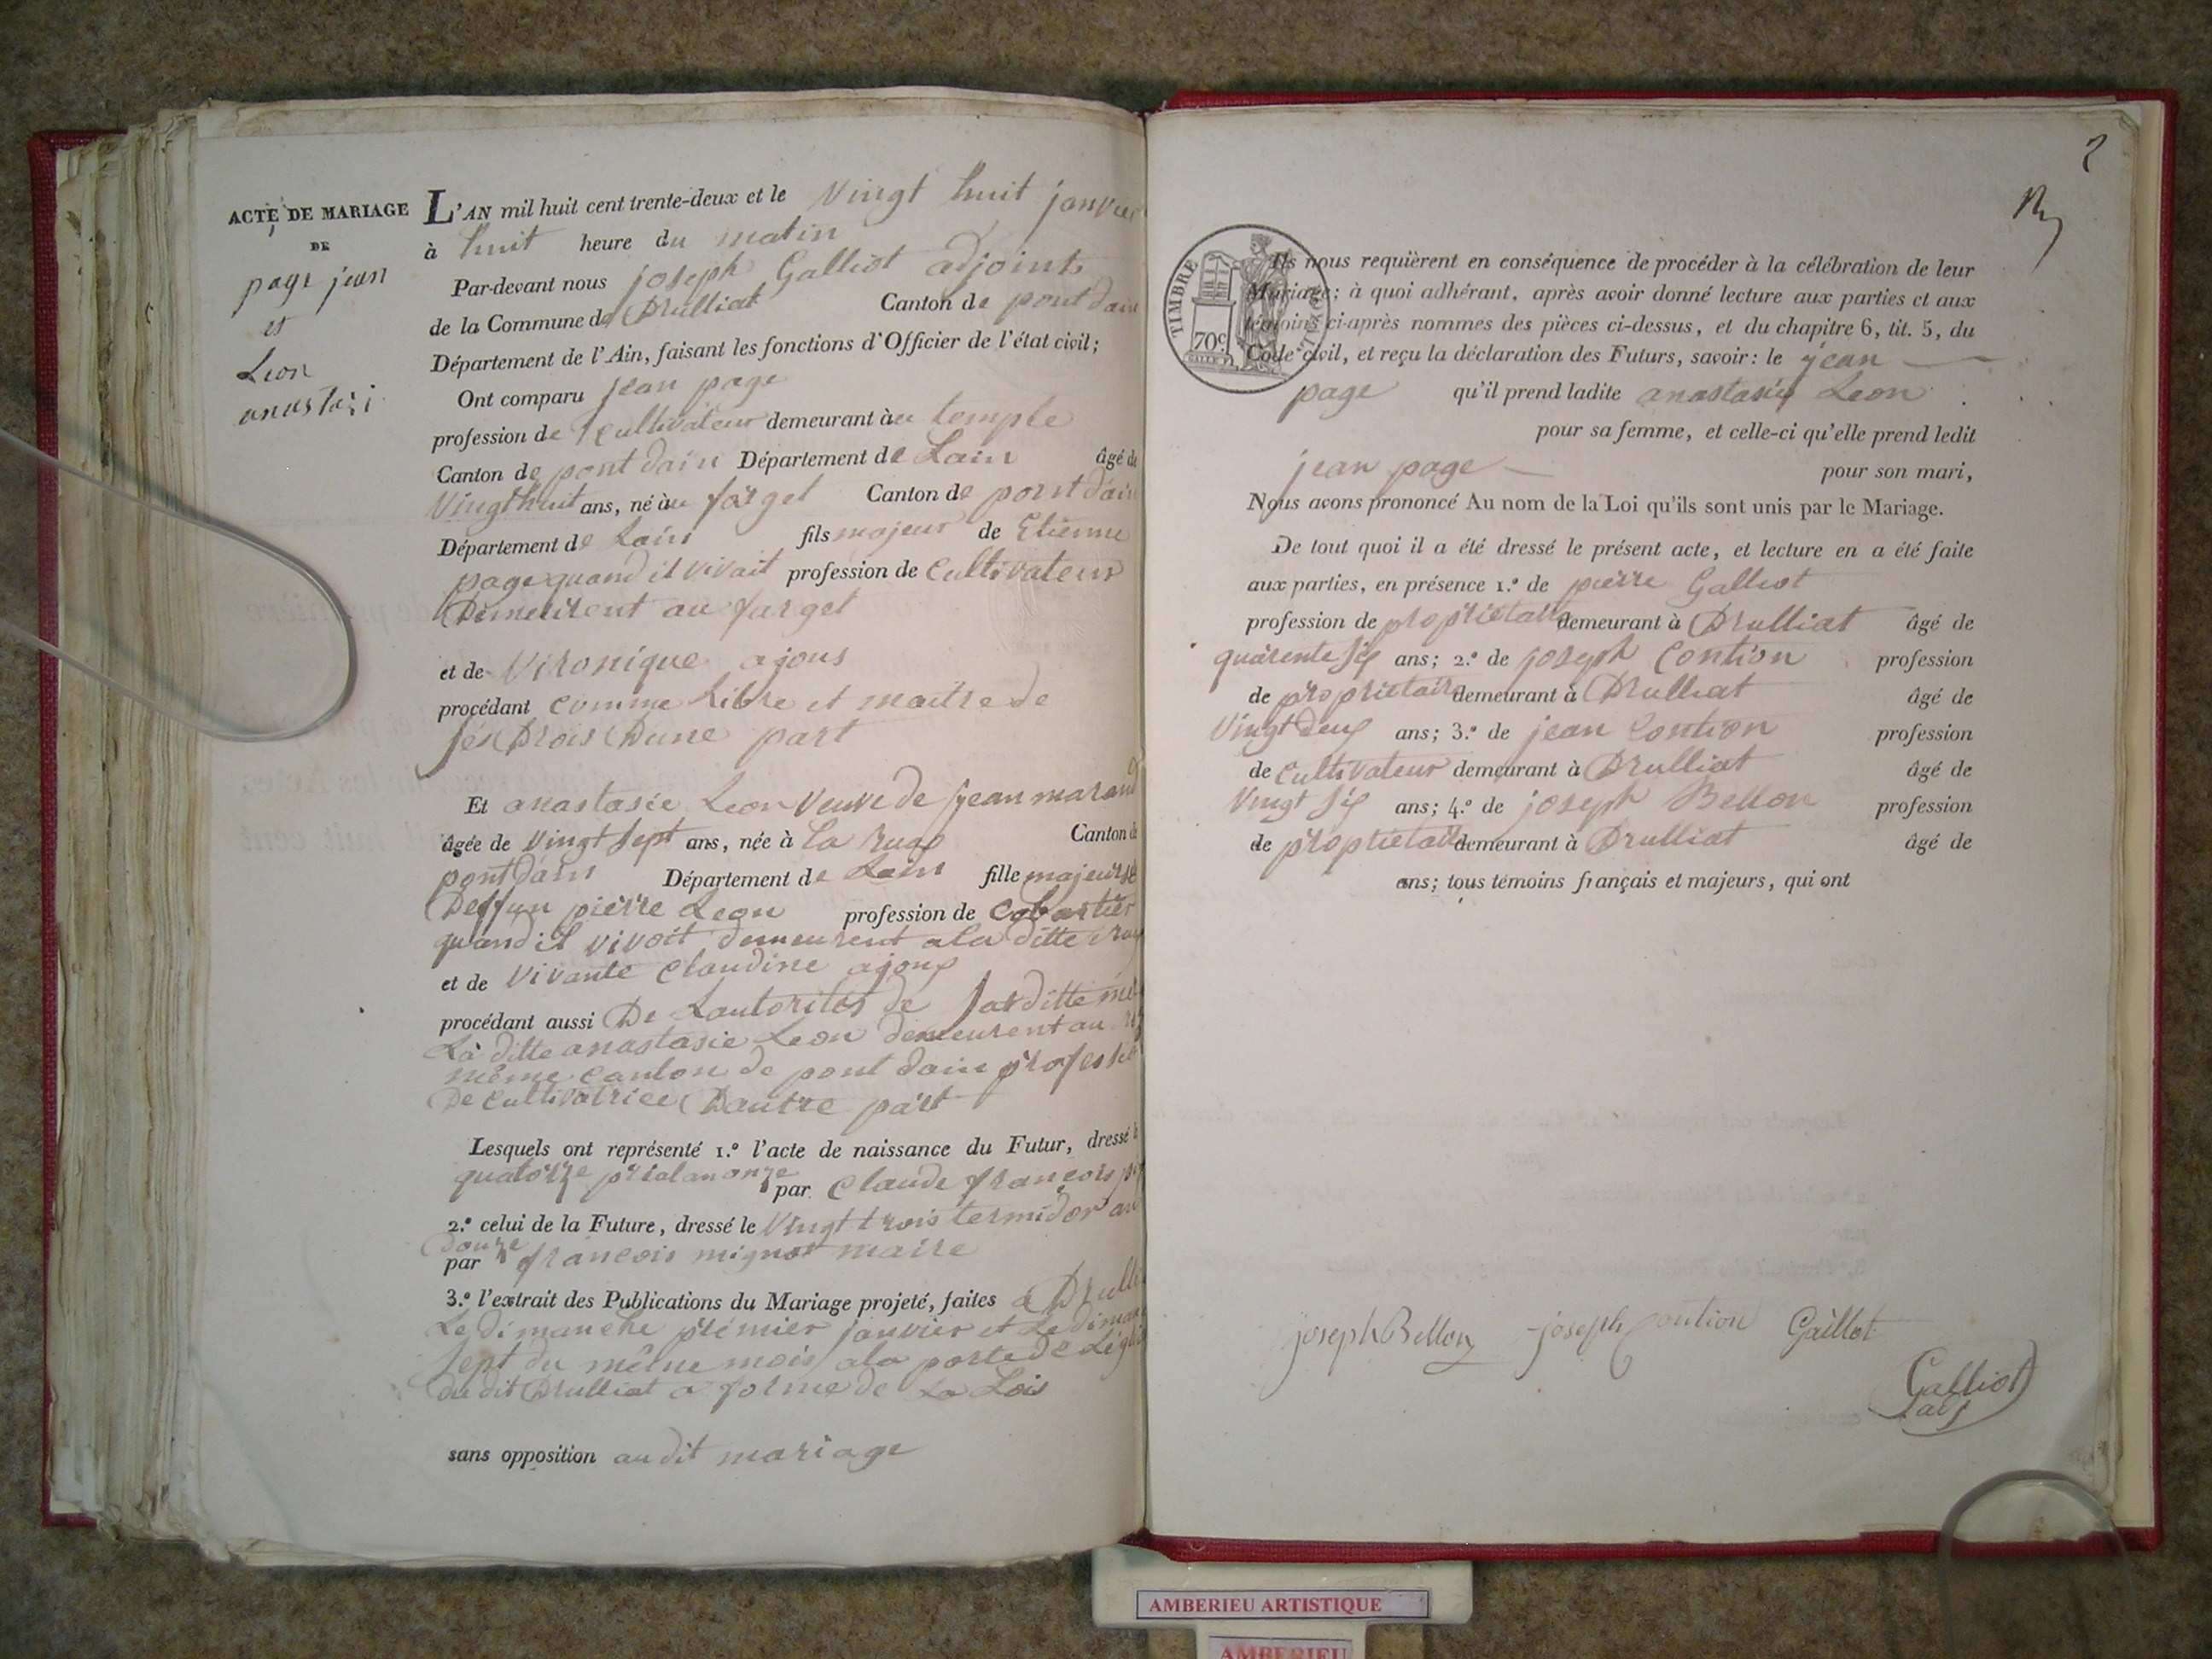 ACTE DE MARIAGE
DE
page jean
et
Leon
anastasi
L'AN mil huit cent trente-deux et le Vingt huit janvier
à huit heure du matin
Par-devant nous joseph Galliot adjoint
de la Commune de Drulliat Canton de pont dain
Département de l'Ain, faisant les fonctions d'Officier de l'état civil;
Ont comparu jean page
profession de Cultivateur demeurant àu temple
Canton de pont dain Département de Lain âgé de
Vingt huit ans, né àu farget Canton de pont dain
Département de Lain fils majeur de Etienne
page quand il vivait profession de Cultivateur
Demeurent au farget
et de Vironique ajous
procédant comme Libre et maitre de
ses Drois Dune part
Et anastasie Leon veuve de jean marand
âgée de vingt sept ans, née à La ruaz Canton de
pont dain Département de Lain fille majeurse
Deffun pierre Leon profession de Cabartier
quand il vivoit demeurent a la ditte
et de vivante Claudine ajoux
procédant aussi De Lautorités de sa ditte
La ditte anastasie Leon demeurent au
même canton de pont dain
De Cultivatrice Dautre part
Lesquels ont représenté 1.º l'acte de naissance du Futur, dressé le
quatorze prialanonze par Claude françois
2.º celui de la Future, dressé le Vingt trois termidor an
Douze
par françois mignot maire
3.º l'extrait des Publications du Mariage projeté, faites a
Le dimanche prémier janvier et Le
sept du même mois a la porte de
du dit Drulliat a forme de La Lois
sans opposition au dit mariage
2
TIMBRE
ROYAL
70c
Ils nous requièrent en conséquence de procéder à la célébration de leur
Mariage; à quoi adhérant, après avoir donné lecture aux parties et aux
témoins ci-après nommes des pièces ci-dessus, et du chapitre 6, tit. 5, du
Code civil, et reçu la déclaration des Futurs, savoir: le jean
page qu'il prend ladite anastasie Leon
pour sa femme, et celle-ci qu'elle prend ledit
jean page pour son mari,
Nous avons prononcé Au nom de la Loi qu'ils sont unis par le Mariage.
De tout quoi il a été dressé le présent acte, et lecture en a été faite
aux parties, en présence 1.º de pierre Galliot
profession de proprietaire demeurant à Drulliat âgé de
quarente six ans; 2.º de joseph Contion profession
de proprietaire demeurant à Drulliat âgé de
Vingt deux ans; 3.º de jean Contion profession
de Cultivateur demeurant à Drulliat âgé de
Vingt six ans; 4.º de joseph Bellon profession
de proprietaire demeurant à Drulliat âgé de
ans; tous témoins français et majeurs, qui ont
joseph Bellon joseph contion Gaillot
Galliot
adj
AMBERIEU ARTISTIQUE
AMBERIEU